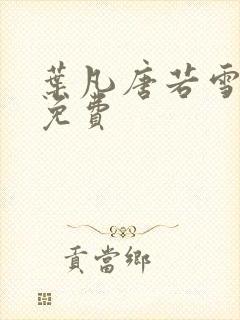 葉凡唐若雪
免費
貢當鄉